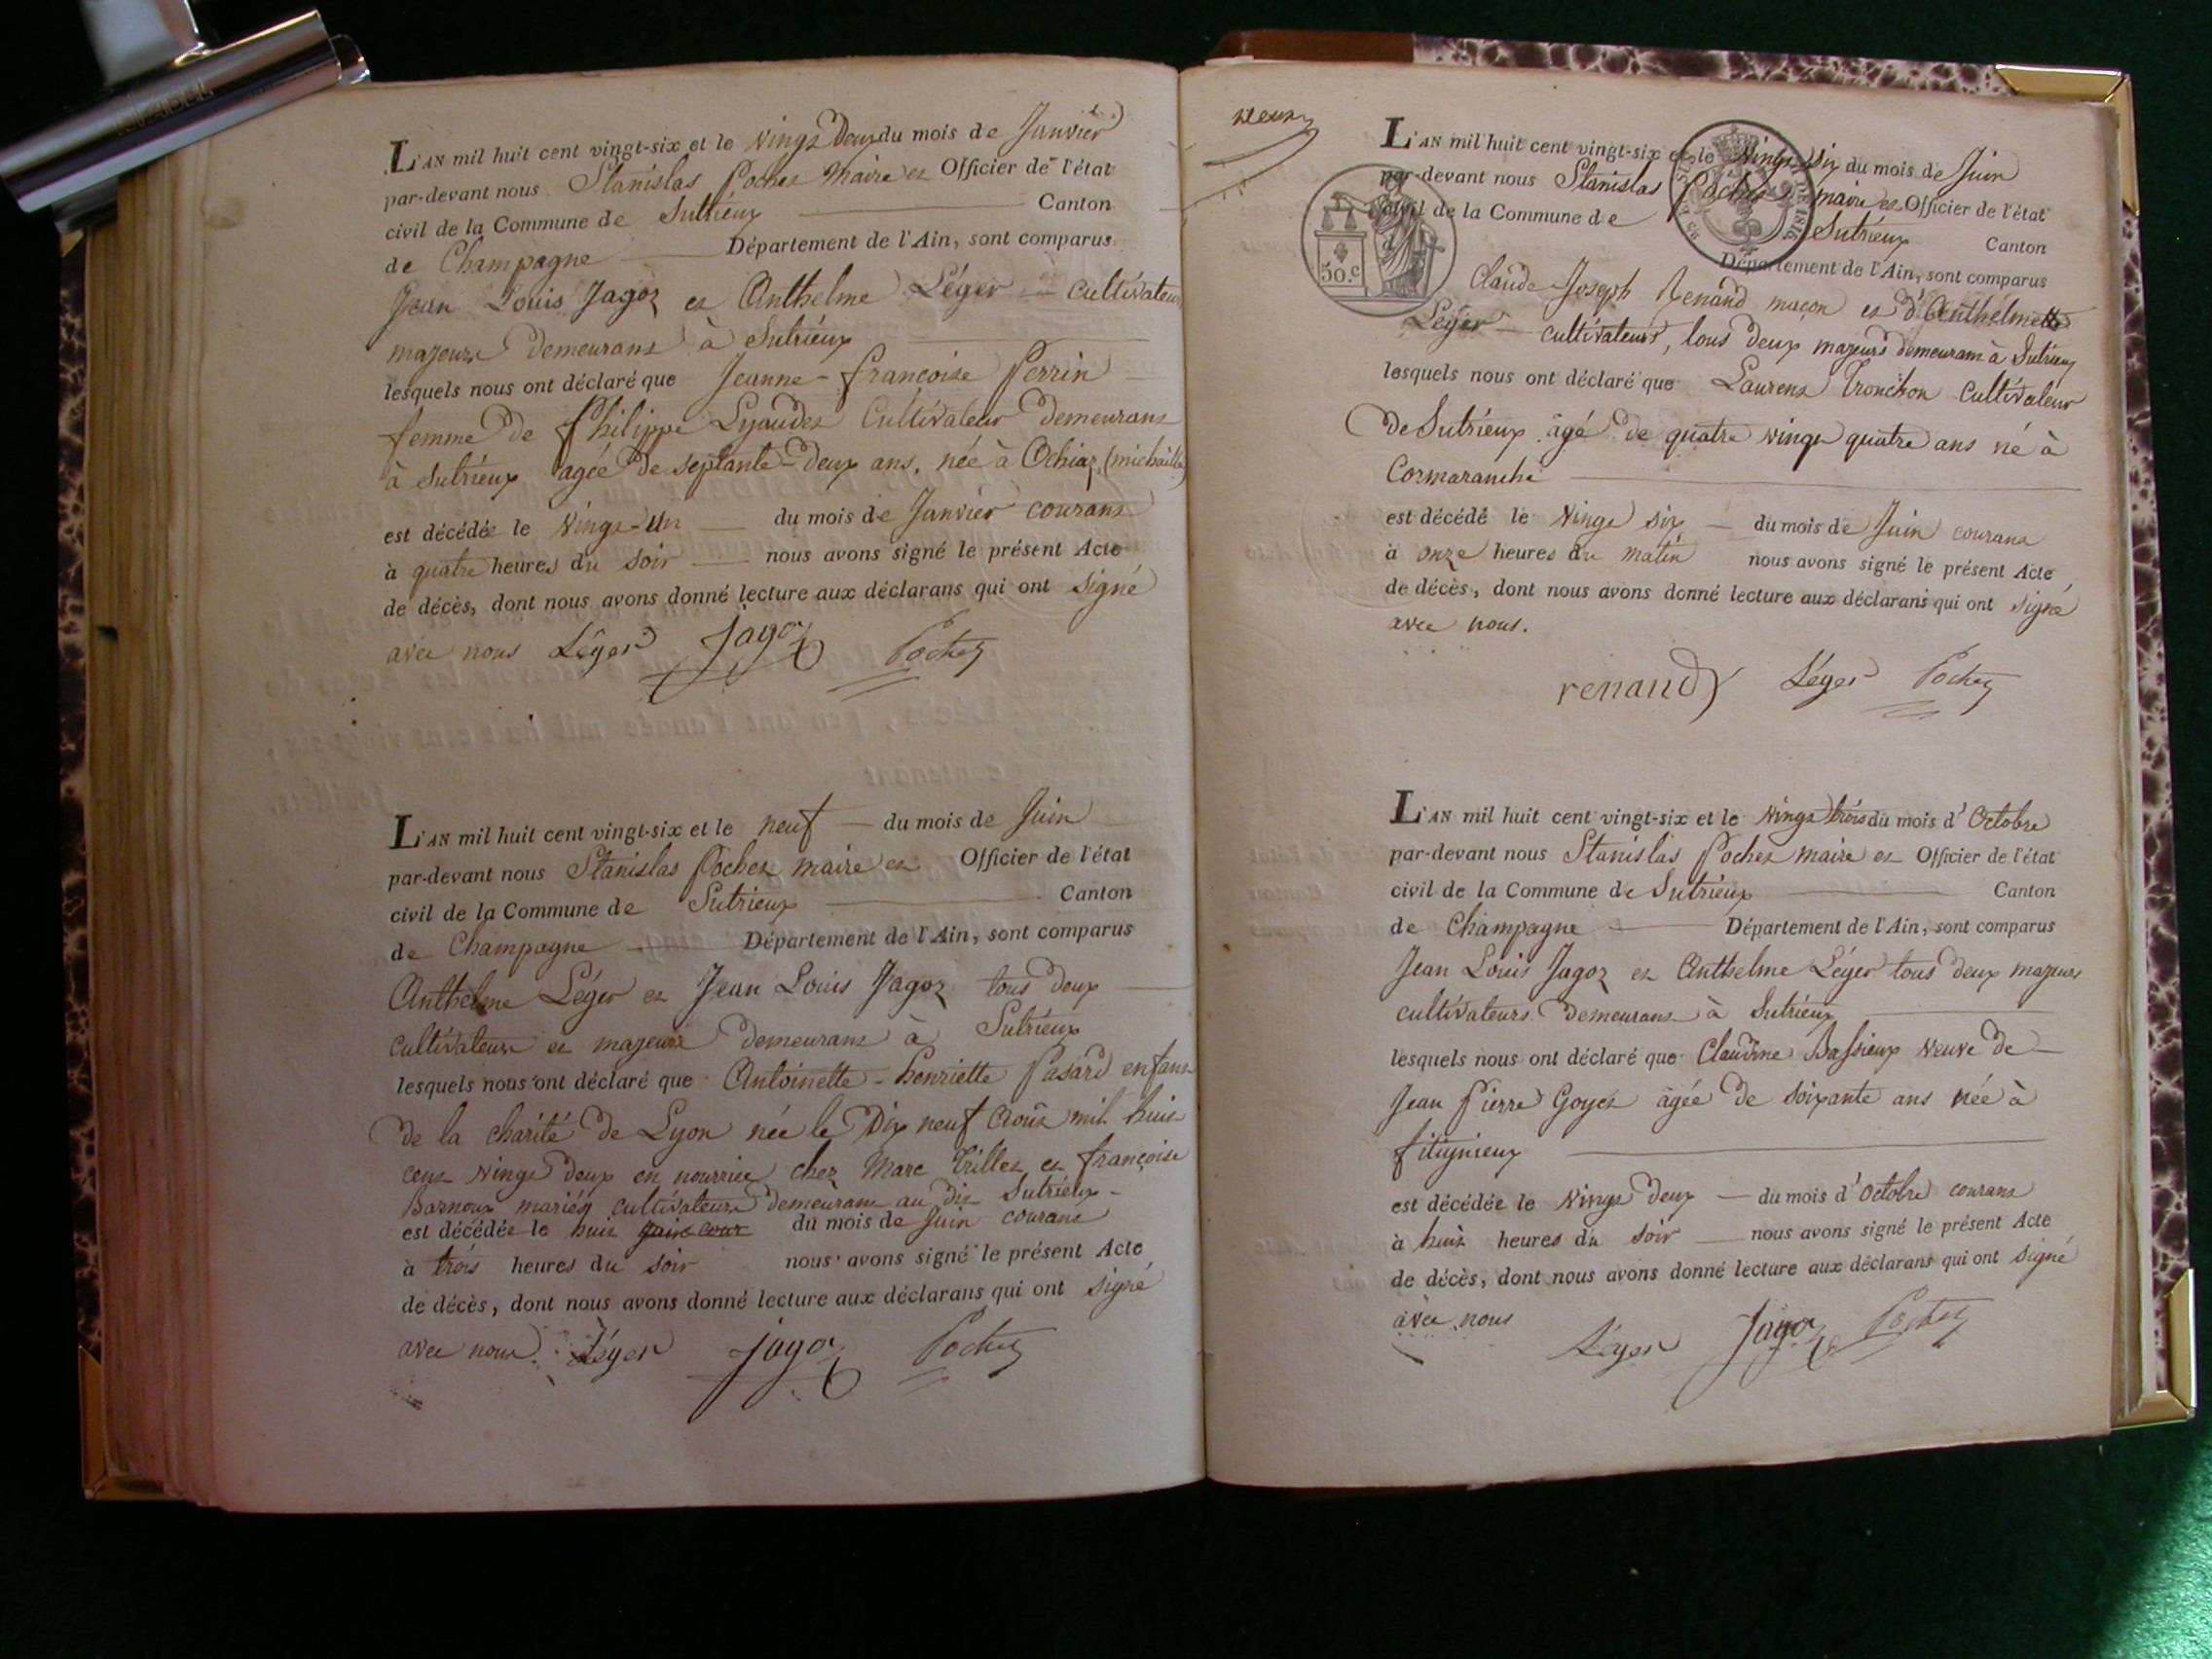 L'AN mil huit cent vingt-six et le vingt Deux du mois de Janvier
par-devant nous Stanislas Pochet Maire et Officier de l'état
civil de la Commune de Sutrieux Canton
de Champagne Département de l'Ain, sont comparus
Jean Louis Jagoz et Anthelme Léger cultivateurs
majeurs demeurans à Sutrieux
lesquels nous ont déclaré que Jeanne-françoise Perrin
femme de Philippe Lyaudet Cultivateur demeurant
à Sutrieux agée de septante-deux ans, née à Ochiaz, (michaille)
est décédée le vingt-un du mois de Janvier courant
à quatre heures du soir nous avons signé le présent Acte
de décès, dont nous avons donné lecture aux déclarans qui ont signé
avec nous Léger Jagoz Pochet
L'AN mil huit cent vingt-six et le neuf du mois de Juin
par-devant nous Stanislas Pochet maire et Officier de l'état
civil de la Commune de Sutrieux Canton
de Champagne Département de l'Ain, sont comparus
Anthelme Léger et Jean Louis Jagoz tous deux
cultivateurs et majeurs demeurans à Sutrieux
lesquels nous ont déclaré que Antoinette-henriette Pasard enfant
de la charité de Lyon née le Dix neuf Août mil huit
cent vingt deux en nourrice chez Marc Trillet et françoise
Barnoux mariés cultivateurs demeurans au dit Sutrieux
est décédée le huit du mois de Juin courant
à trois heures du soir nous avons signé le présent Acte
de décès, dont nous avons donné lecture aux déclarans qui ont signé
avec nous. Léger jagoz Pochet
L'AN mil huit cent vingt-six et le vingt six du mois de Juin
par-devant nous Stanislas Pochet maire et Officier de l'état
civil de la Commune de Sutrieux Canton
Département de l'Ain, sont comparus
50.c
DE 1816
Claude Joseph Renand maçon et d'Anthelme
Léger cultivateurs, tous deux majeurs demeurans à Sutrieux
lesquels nous ont déclaré que Laurent Tronchon Cultivateur
de Sutrieux âgé de quatre vingt quatre ans né à
Cormaranche
est décédé le vingt six du mois de Juin courant
à onze heures du matin nous avons signé le présent Acte
de décès, dont nous avons donné lecture aux déclarans qui ont signé
avec nous.
renand Léger Pochet
L'AN mil huit cent vingt-six et le vingt trois du mois d'Octobre
par-devant nous Stanislas Pochet maire et Officier de l'état
civil de la Commune de Sutrieux Canton
de Champagne Département de l'Ain, sont comparus
Jean Louis Jagoz et Anthelme Léger tous deux majeurs
cultivateurs demeurans à Sutrieux
lesquels nous ont déclaré que Claudine Bassieux veuve de
Jean Pierre Goyet âgée de soixante ans née à
fitignieux
est décédée le vingt deux du mois d'octobre courant
à huit heures du soir nous avons signé le présent Acte
de décès, dont nous avons donné lecture aux déclarans qui ont signé
avec nous
Léger Jagoz Pochet